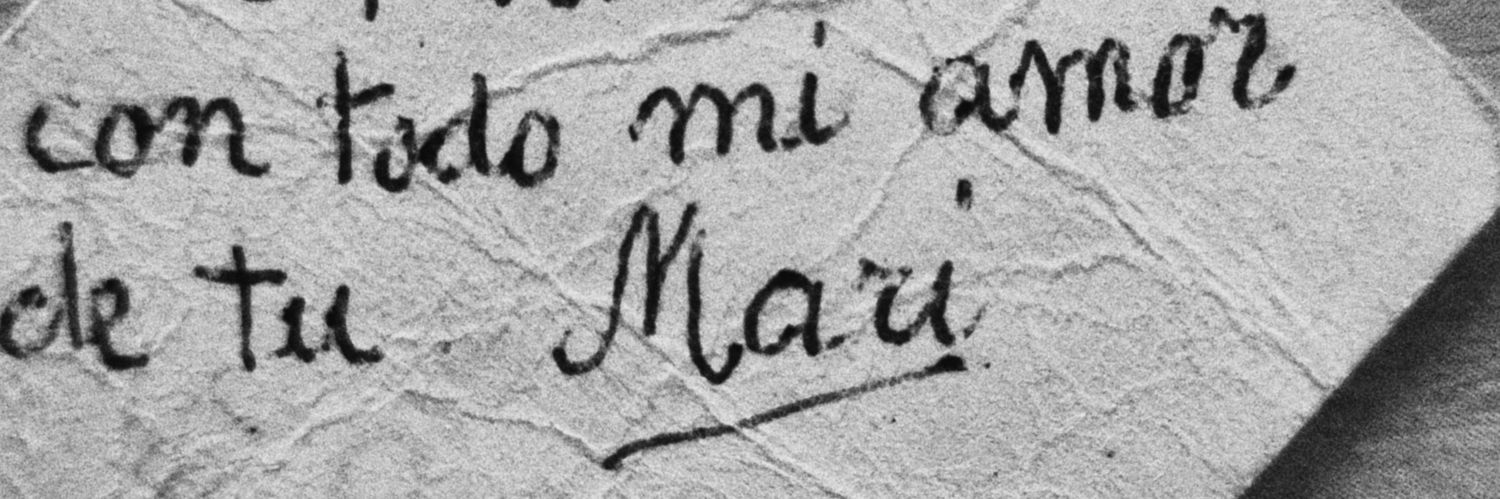 con todo mi amor
de tu Mari